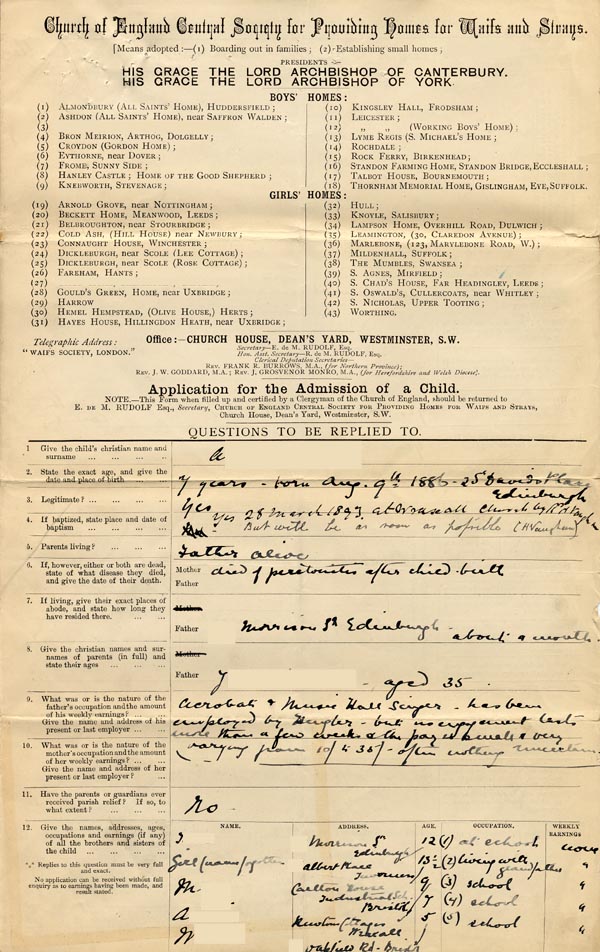 Church of England Central Society for Providing Homes for Waifs and Strays.
[Means adopted :—(1) Boarding out in families ; (2)-Establishing small homes ;
PRESIDENTS
HIS GRACE THE LORD ARCHBISHOP OF CANTERBURY.
HIS GRACE THE LORD ARCHBISHOP OF YORK.
BOYS' HOMES:
(1) ALMONDBURY (ALL SAINTS' HOME), HUDDERSFIELD ;
(2) ASHDON (ALL SAINTS' HOME), near SAFFRON WALDEN ;
(3)
(4) BRON MEIRION, ARTHOG, DOLGELLY ;
(5) CROYDON (GORDON HOME) ;
(6) EYTHORNE, near DOVER ;
(7) FROME, SUNNY SIDE ;
(8) HANLEY CASTLE ; HOME OF THE GOOD SHEPHERD ;
(9) KNEBWORTH, STEVENAGE ;
(10) KINGSLEY HALL, FRODSHAM ;
(11) LEICESTER ;
(12) „ „ (WORKING BOYS' HOME) ;
(13) LYME REGIS (S. MICHAEL'S HOME ;
(14) ROCHDALE ;
(15) ROCK FERRY, BIRKENHEAD ;
(16) STANDON FARMING HOME, STANDON BRIDGE, ECCLESHALL ;
(17) TALBOT HOUSE, BOURNEMOUTH ;
(18) THORNHAM MEMORIAL HOME, GISLINGHAM, EYE, SUFFOLK.
GIRLS' HOMES:
(19) ARNOLD GROVE, near NOTTINGHAM ;
(20) BECKETT HOME, MEANWOOD, LEEDS ;
(21) BELBROUGHTON, near STOURBRIDGE ;
(22) COLD ASH, (HILL HOUSE) near NEWBURY ;
(23) CONNAUGHT HOUSE, WINCHESTER ;
(24) DICKLEBURGH, near SCOLE (LEE COTTAGE) ;
(25) DICKLEBURGH, near SCOLE (ROSE COTTAGE) ;
(26) FAREHAM, HANTS ;
(27)
(28) GOULD'S GREEN, HOME, near UXBRIDGE ;
(29) HARROW
(30) HEMEL HEMPSTEAD, (OLIVE HOUSE), HERTS ;
(31) HAYES HOUSE, HILLINGDON HEATH, near UXBRIDGE ;
(32) HULL ;
(33) KNOYLE, SALISBURY ;
(34) LAMPSON HOME, OVERHILL ROAD, DULWICH ;
(35) LEAMINGTON, (30, CLAREDON AVENUE) ;
(36) MARLEBONE, (123, MARYLEBONE ROAD, W.) ;
(37) MILDENHALL, SUFFOLK ;
(38) THE MUMBLES, SWANSEA ;
(39) S. AGNES, MIRFIELD ;
(40) S. CHAD'S HOUSE, FAR HEADINGLEY, LEEDS ;
(41) S. OSWALD'S, CULLERCOATS, near WHITLEY ;
(42) S. NICHOLAS, UPPER TOOTING ;
(43) WORTHING.
Telegraphic Address :
"WAIF'S SOCIETY, LONDON."
Office :—CHURCH HOUSE, DEAN'S YARD, WESTMINSTER, S.W.
Secretary—E. DE M. RUDOLF, Esq.
Hon. Asst. Secretary—R. DE M. RUDOLF, Esq.
Clerical Deputation Secretaries—
REV. FRANK R. BURROWS, M.A., (for Northern Province);
REV. J. W. GODDARD, M.A. ; REV. J. GROSVENOR MONRO, M.A., (for Herefordshire and Welsh Diocese).
Application for the Admission of a Child.
NOTE.—This Form when filled up and certified by a Clergyman of the Church of England, should be returned to
E. DE M. RUDOLF Esq., Secretary, CHURCH OF ENGLAND CENTRAL SOCIETY FOR PROVIDING HOMES FOR WAIFS AND STRAYS,
Church House, Dean's Yard, Westminster, S.W.
QUESTIONS TO BE REPLIED TO.
1 Give the child's christian name and surname
A
2. State the exact age, and give the date and place of birth
7 years - born Aug. 9th 1885 - 25 Davids Place
Edinburgh
3. Legitimate?
Yes
4. If baptized, state place and date of baptism
Yes 28 March 1893, at Ordsall Church by R H Vaughan
But will be as soon as possible (HVaughan)
5. Parents living?
Father alive
6. If, however, either or both are dead, state of what disease they died, and give the date of their death.
Mother died of peritonitis after child-birth
Father
7. If living, give their exact places of abode, and state how long they have resided there.
Mother
Father Morrison St. Edinburgh - about a month
8. Give the christian names and surnames of parents (in full) and state their ages
Mother
Father J aged 35
9. What was or is the nature of the father's occupation and the amount of his weekly earnings?
Give the name and address of his present or last employer?
Acrobat & Music Hall Singer - has been
employed by Hengler - but no engagement lasts
more than a few weeks & the pay is small & very
varying from 10/ to 35/ - often nothing
10. What was or is the nature of the mother's occupation and the amount of her weekly earnings?
Give the name and address of her present or last employer?
11. Have the parents or guardians ever received parish relief? If so, to what extent?
No
12. Give the names, addresses, ages, occupations and earnings (if any) of all the brothers and sisters of the child
"." Replies to this question must be very full and exact.
No application can be received without full enquiry as to earnings having been made, and result stated.
NAME. ADDRESS. AGE. OCCUPATION. WEEKLY EARNINGS
J Morrison St. Edinburgh 12 (1) at school none
Girl (name forgotten Albert Place Inverness (2) living with grandfather "
M Carlton House Industrial Sch. Bristol 9 (3) school "
A 7 (4) school "
W 5 (5) school "
Oakfield Rd - Bristol